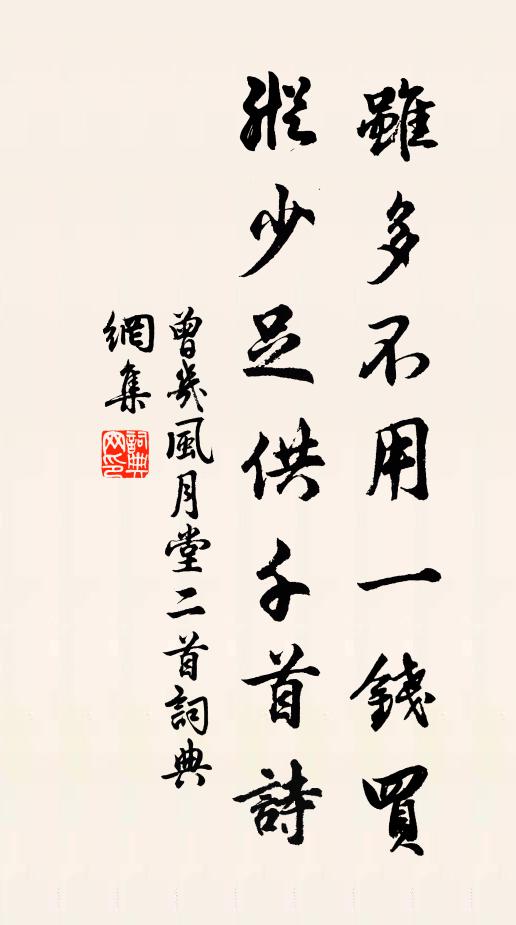 雖多不用一錢買
縱少足供千首詩
曾幾風月堂二首詞典
網集
詞典
网印